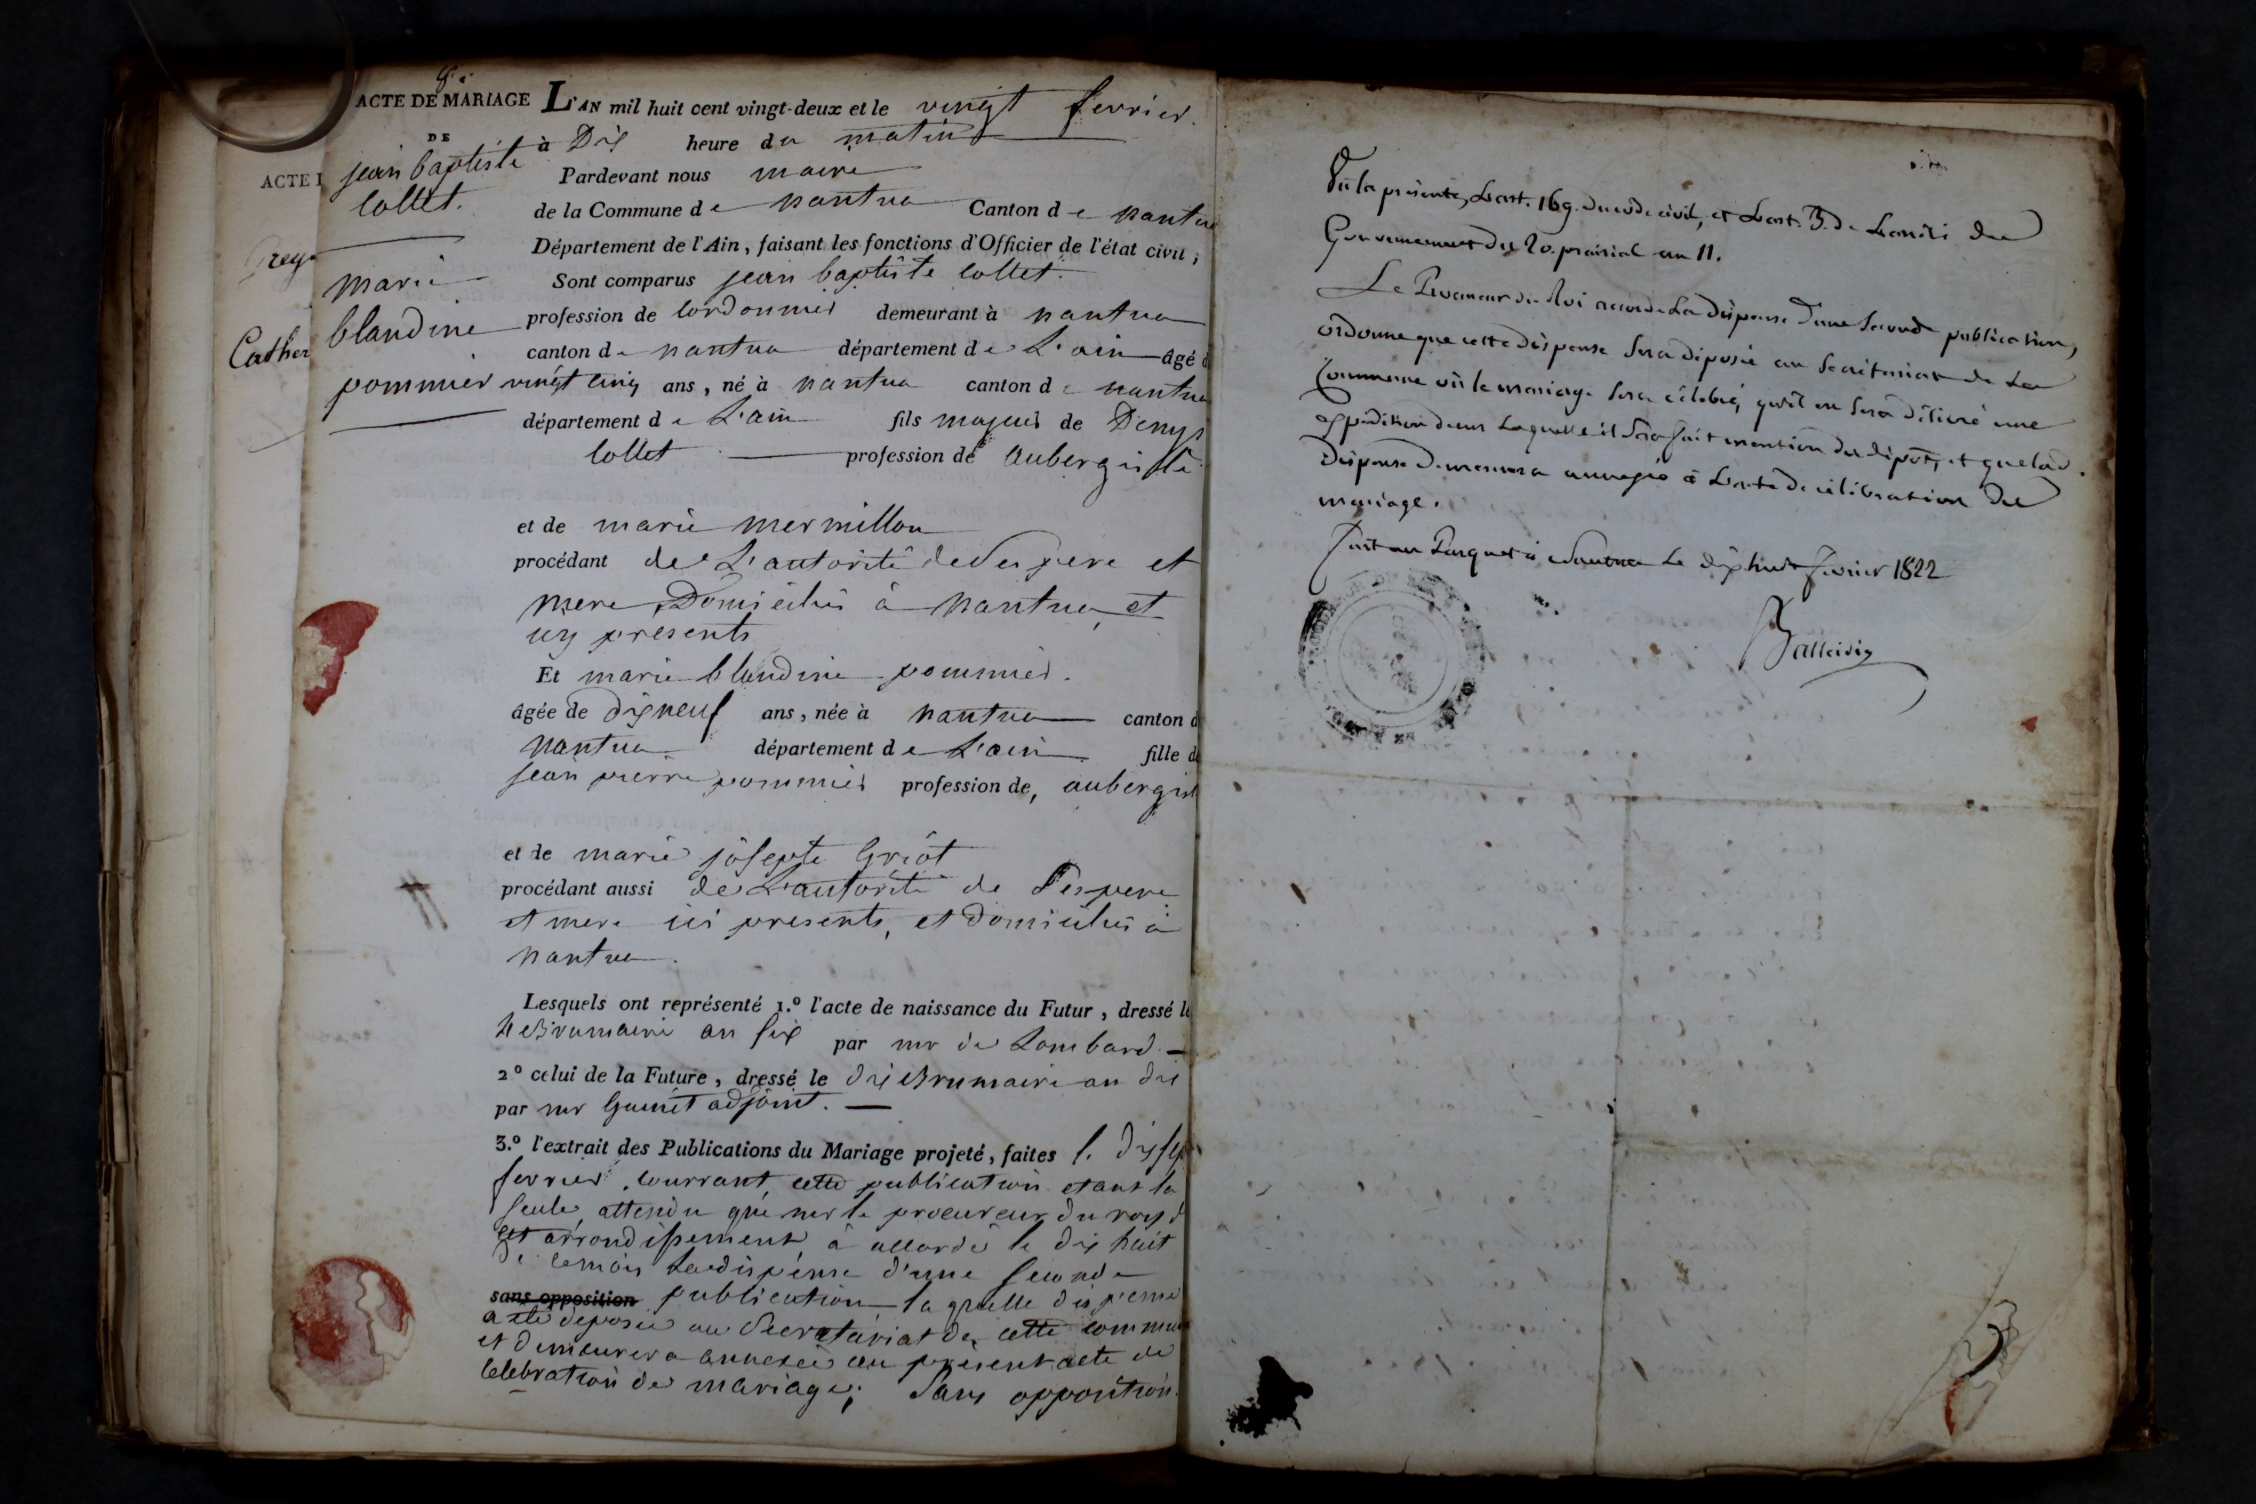 8.e
ACTE DE MARIAGE
DE
jean baptiste
Collet.
marie
blandine
pommier
ACTE D
Cather
L'AN mil huit cent vingt-deux et le vingt fevrier.
à Dix heure du matin
Pardevant nous maire
de la Commune de nantua Canton de nantua
Département de l'Ain, faisant les fonctions d'Officier de l'état civil,
Sont comparus jean baptiste Collet.
profession de Cordonnier demeurant à nantua
canton de nantua département de L'ain âgé d
vingt cinq ans, né à nantua canton de nantua
département de L'ain fils majeur de Denys
Collet profession de aubergiste
et de marie mermillon
procédant de L'autorité de Ses pere et
mere, Domiciliés à nantua, et
icy présents
Et marie blandine pommier.
âgée de dixneuf ans, née à nantua canton d
nantua département de L'ain fille de
jean pierre pommier profession de, aubergist
et de marie josepte Griot
procédant aussi de L'autorité de Ses pere
et mere ici presents, et domiciliés à
nantua.
Lesquels ont représenté 1.º l'acte de naissance du Futur, dressé le
4 Brumaire an six par mr de Lombard
2º celui de la Future, dressé le dix Brumaire an dix
par mr Guinet adjoint.
3.º l'extrait des Publications du Mariage projeté, faites le dix sep
fevrier courrant, cette publication etant la
seule, attendu que mr le procureur du roy d
cet arrondissement, à accordé le dix huit
de cemois La dispense d'une seconde
sans opposition publication la quelle dispense
a eté deposée au Secretariat de cette commun
et demeurera annexée au présent acte de
Celebration de mariage; Sans opposition.
Vu la présente, L'art. 169. du code civil, et L'art. 3. de L'arrêté du
Gouvernement du 20. prairial an 11.
Le Procureur du Roi accorde La dispense d'une seconde publication,
ordonne que cette dispense sera déposée au secrétariat de La
Commune où le mariage sera célébré, qu'il en sera délivré une
expédition dans Laquelle il sera fait mention du dépôt, et que lad.
dispense demeurera annexée à L'acte de célébration du
mariage.
fait au Parquet à Nantua Le dix huit février 1822